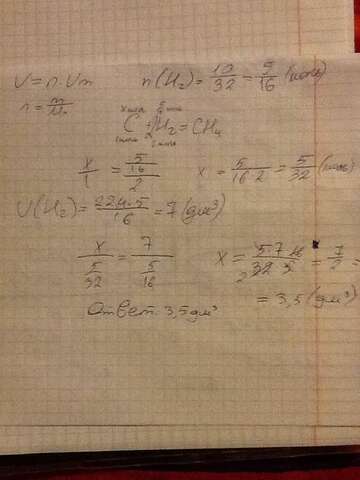 V=n·Vm n(H₂)=10/32=5/16(моль)
n=m/Mr
x моль 5/16 моль
C+2H₂=CH₄
1 моль 2 моль
x/1=5/16/2 x=5/16·2=5/32(моль)
V(H₂)=22,4·5/16=7(дм³)
x/5/32=7/5/16 x=5·7·16/32·5=7/2=
=3,5(дм³)
Ответ: 3,5 дм³